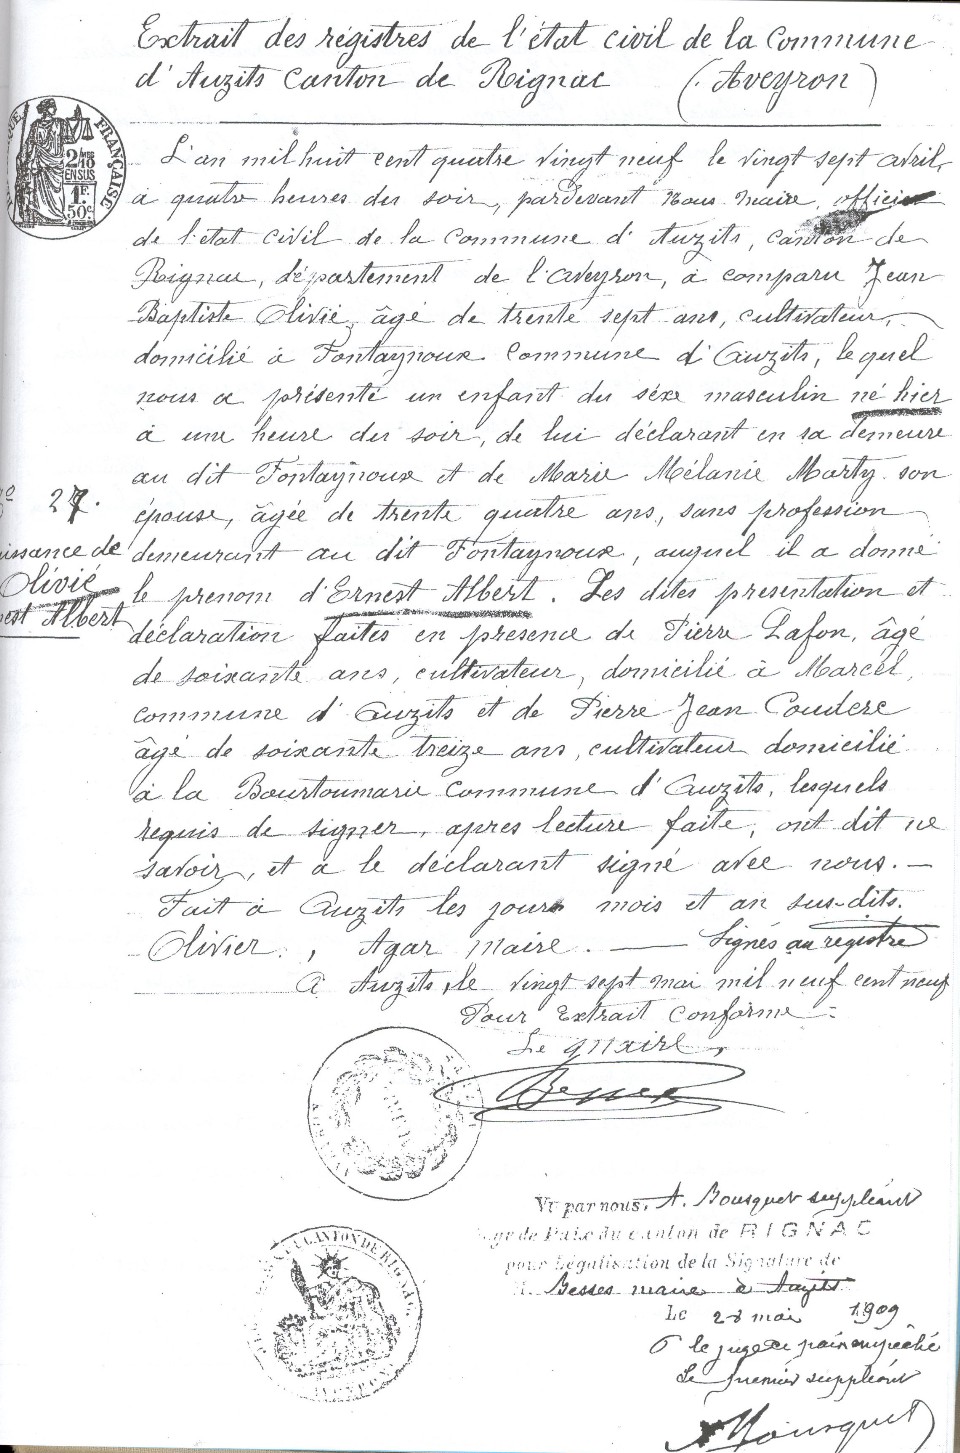 Extrait des régistres de l'état civil de la Commune
d'Auzits Canton de Rignac (Aveyron)
FRANÇAISE
2/10
EN SUS
1F.
50c
L'an mil huit cent quatre vingt neuf le vingt sept avril,
à quatre heures du soir, pardevant Nous Maire, officier
de l'état civil de la Commune d'Auzits, canton de
Rignac, département de l'Aveyron, à comparu Jean
Baptiste Olivié, âgé de trente sept ans, cultivateur,
domicilié à Fontaynoux commune d'Auzits, lequel
nous a présenté un enfant du séxe masculin né hier
à une heure du soir, de lui déclarant en sa demeure
au dit Fontaynoux et de Marie Mélanie Marty son
épouse, âgée de trente quatre ans, sans profession
demeurant au dit Fontaynoux, auquel il a donné
le prenom d'Ernest Albert. Les dites presentation et
déclaration faites en presence de Pierre Lafon, âgé
de soixante ans, cultivateur, domicilié à Marcel,
commune d'Auzits et de Pierre Jean Couderc
âgé de soixante treize ans, cultivateur domicilié
à la Bourtoumarie commune d'Auzits, lesquels
requis de signer, apres lecture faite, ont dit ne
savoir, et a le déclarant signé avec nous. —
Fait à Auzits les jour mois et an sus-dits.
Olivier, Agar Maire. — Signés au registre
A Auzits, le vingt sept mai mil neuf cent neuf
Pour Extrait conforme
Le Maire,
Besses
No 27.
issance de
Olivié
est Albert
Vu par nous, A. Bousquet suppléant
Juge de Paix du canton de RIGNAC
pour Légalisation de la Signature de
M. Besses maire à Auzits
Le 28 mai 1909
le juge de paix empêché
Le premier suppléant
A Bousquet
CANTON DE RIGNAC
AVEYRON